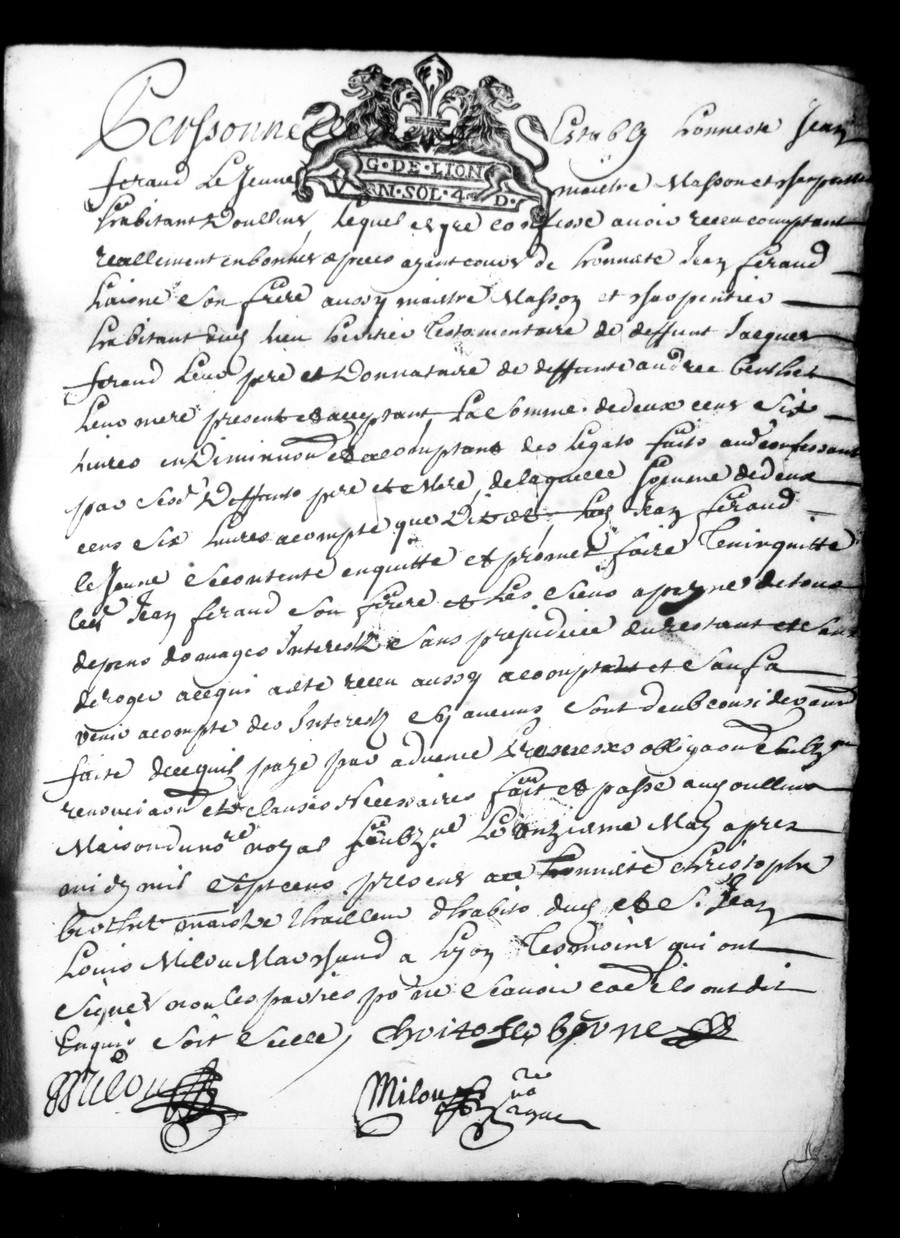 Personne Estably honneste Jean
G·DE·LION
VN·SOL·4·D·
feraud Le Jeune maistre Masson et charpentier
habitant Doullins, lequel de gre confesse avoir receu comptant
reallement en bonnes especes ayant cours de honneste Jean feraud
Laisne son frere aussy maistre Masson et charpentier
habitant dud lieu heritier Testamentaire de deffunt Jacques
feraud Leur pere et Donnataire de deffunte andree berthet
Leur mere present et acceptant La somme de deux cens six
livres en Diminuon et acomptant des Legats faits aud confessant
par sesd Deffunts pere et Mere, de laquelle somme de deux
cens six Livres acompte que Dit est Led Jean feraud
le Jeune se contente en quitte et promet faire Tenir quitte
led Jean feraud son frere et Les siens a peyne de tous
depens domages Interestz sans prejudice du restant et sans
deroger a ce qui a este receu aussy acomptant et sans a
venir acompte des Interestz sy aucuns sont deub consideraon
faite de ce quil paye par advence obligaon
renonciaon et clauses Necessaires fait et passe aud oullins
Maison du nore royal soubzne Le onziesme May apres
midy mil sept cens presens honneste christophe
berthet maistre Thailleur dhabits dud et Sr Jean
Louis Milou Marchand a Lyon Tesmoins qui ont
signe non les parties pour ne scavoir ils ont dit
Enquis soit scelle christofle
Milou
Milou